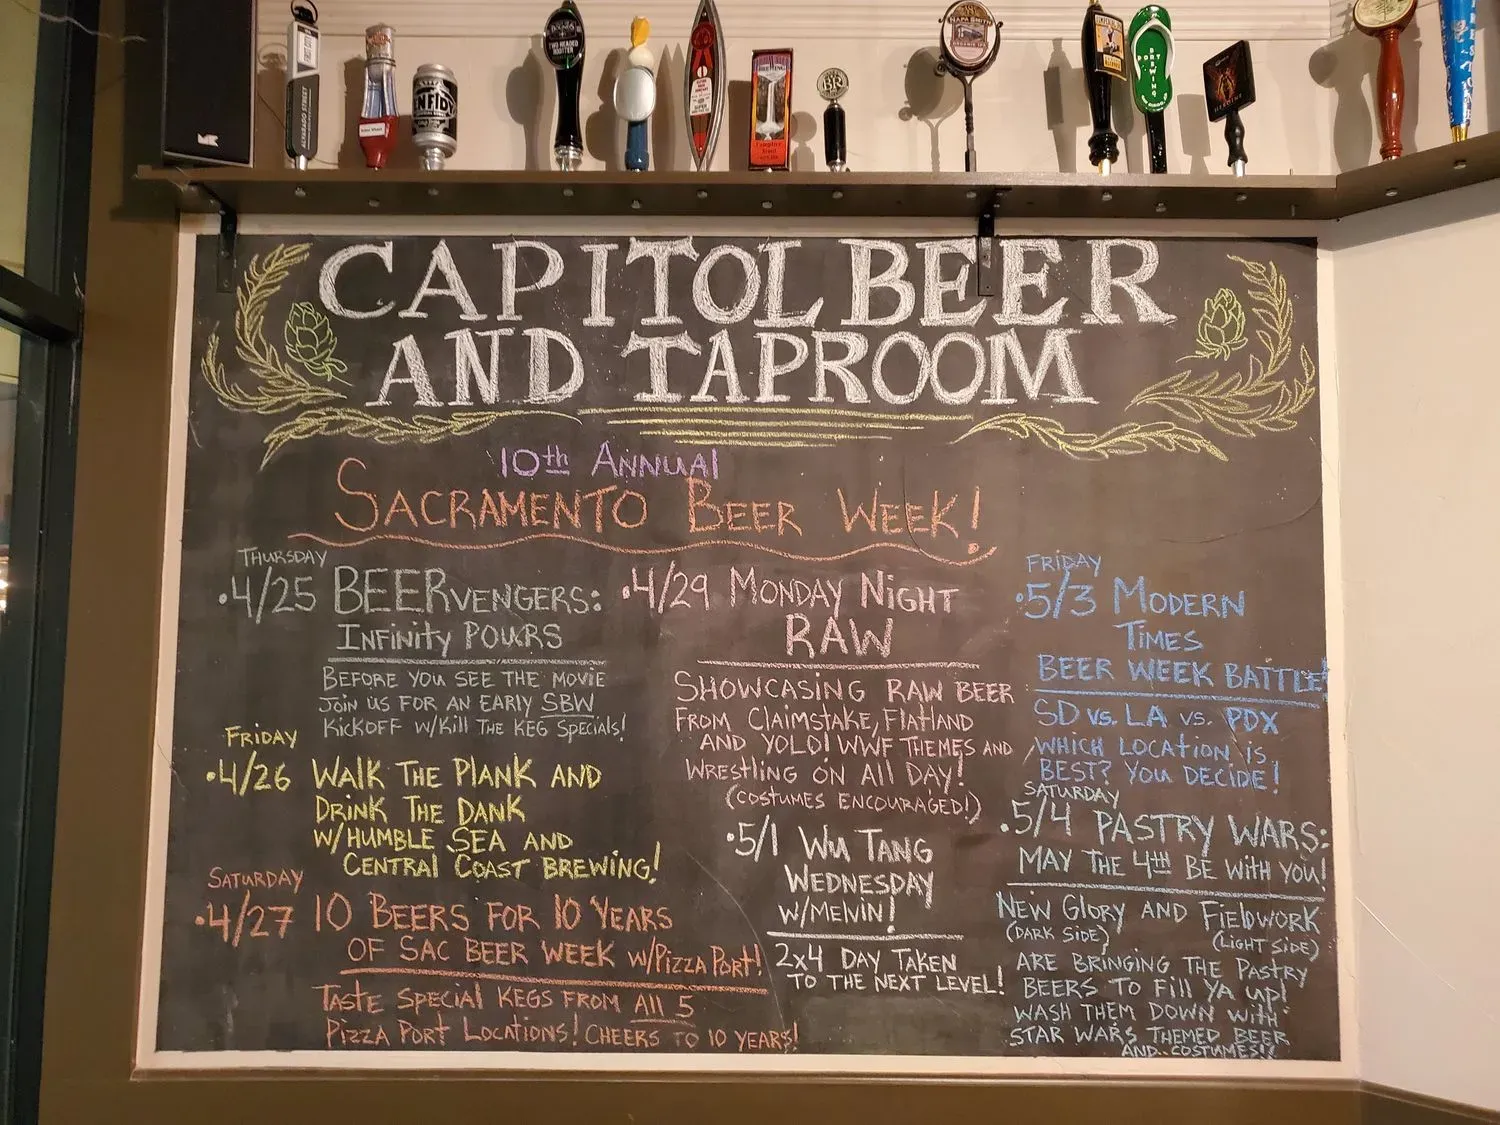 ALVARADO STREET
TWO HEADED
BR
NAPA SMITH
ORGANIC IPA
PORT BREWING
CAPITOL BEER
AND TAPROOM
10th ANNUAL
SACRAMENTO BEER WEEK!
THURSDAY
•4/25 BEERVENGERS:
INFINITY POURS
BEFORE YOU SEE THE MOVIE
JOIN US FOR AN EARLY SBW
KICKOFF W/KILL THE KEG SPECIALS!
FRIDAY
•4/26 WALK THE PLANK AND
DRINK THE DANK
W/HUMBLE SEA AND
CENTRAL COAST BREWING!
SATURDAY
•4/27 10 BEERS FOR 10 YEARS
OF SAC BEER WEEK W/PIZZA PORT!
TASTE SPECIAL KEGS FROM All 5
PIZZA PORT LOCATIONS! CHEERS TO 10 YEARS!
•4/29 MONDAY NIGHT
RAW
SHOWCASING RAW BEER
FROM CLAIMSTAKE, FLATLAND
AND YOLO! WWF THEMES AND
WRESTLING ON ALL DAY!
(COSTUMES ENCOURAGED!)
•5/1 WU TANG
WEDNESDAY
W/MELVIN!
2x4 DAY TAKEN
TO THE NEXT LEVEL!
FRIDAY
•5/3 MODERN
TIMES
BEER WEEK BATTLE!
SD vs. LA vs. PDX
WHICH LOCATION IS
BEST? YOU DECIDE!
SATURDAY
•5/4 PASTRY WARS:
MAY THE 4TH BE WITH YOU!
NEW GLORY AND FIELDWORK
(DARK SIDE) (LIGHT SIDE)
ARE BRINGING THE PASTRY
BEERS TO FILL YA UP!
WASH THEM DOWN WITH
STAR WARS THEMED BEER
AND..COSTUMES!!